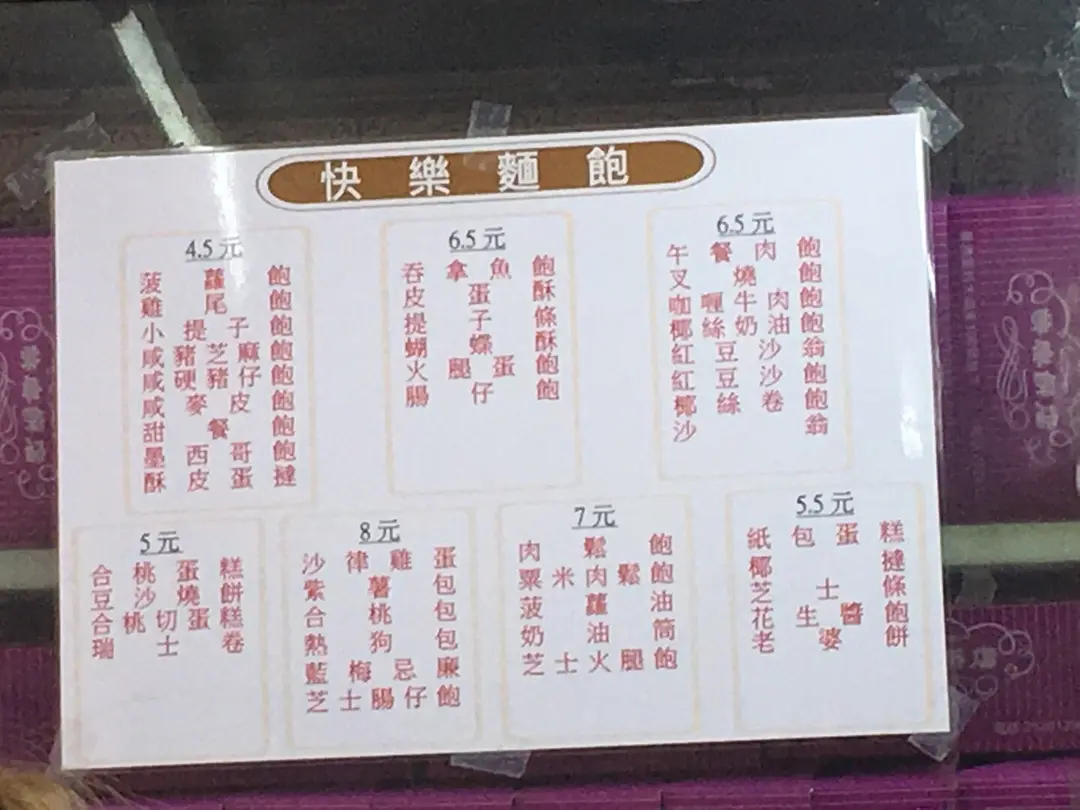 快樂麵飽
4.5元
菠蘿飽
雞尾飽
小提子飽
咸豬芝麻飽
咸硬豬仔飽
咸麥皮飽
甜餐飽
墨西哥飽
酥皮蛋撻
6.5元
吞拿魚飽
皮蛋酥
提子條
蝴蝶酥
火腿蛋飽
腸仔飽
6.5元
午餐肉飽
叉燒飽
咖喱牛肉飽
椰絲奶油飽
紅豆沙翁
紅豆沙飽
椰絲卷飽
沙翁
5元
合桃蛋糕
豆沙燒餅
合桃切蛋糕
瑞士卷
8元
沙律雞蛋
紫薯包
合桃包
熱狗包
藍梅忌廉
芝士腸仔飽
7元
肉鬆飽
粟米肉鬆飽
菠蘿油
奶油筒
芝士火腿飽
5.5元
紙包蛋糕
椰撻
芝士條
花生醬飽
老婆餅